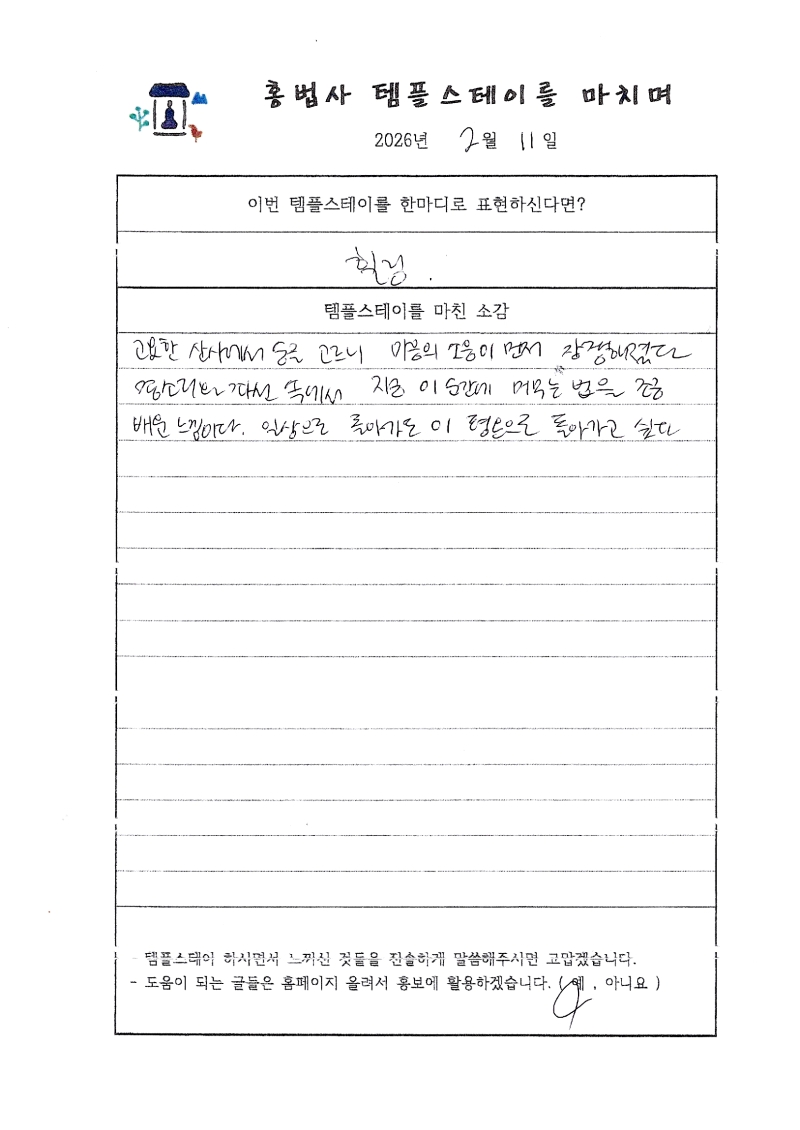 홍법사 템플스테이를 마치며
2026년 2월 11일
이번 템플스테이를 한마디로 표현하신다면?
힐링.
템플스테이를 마친 소감
고요한 산사에서 숨을 고르니 마음의 소음이 먼저 잠잠해졌다
종소리와 좌선 속에서 지금 이 순간에 머무는 법을 조금
배운 느낌이다. 일상으로 돌아가도 이 평온으로 돌아가고 싶다
- 템플스테이 하시면서 느끼신 것들을 진솔하게 말씀해주시면 고맙겠습니다.
- 도움이 되는 글들은 홈페이지 올려서 홍보에 활용하겠습니다. ( 예 , 아니요 )